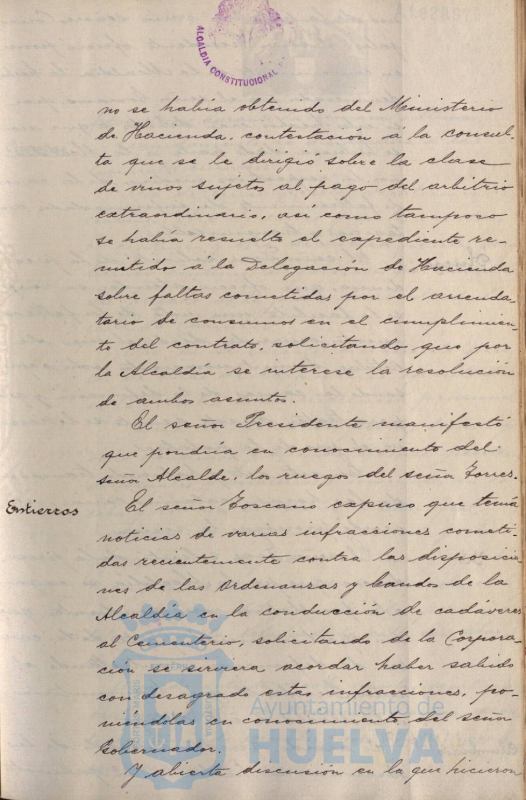 ALCALDÍA CONSTITUCIONAL
no se había obtenido del Ministerio
de Hacienda, contestación á la consul-
ta que se le dirigió sobre la clase
de vinos sujetos al pago del arbitrio
extraordinario, así como tampoco
se había resuelto el expediente re-
mitido á la Delegación de Hacienda
sobre faltas cometidas por el arrenda-
tario de consumos en el cumplimien-
to del contrato, solicitando que por
la Alcaldía se interese la resolución
de ambos asuntos.
El señor Presidente manifestó
que pondría en conocimiento del
señor Alcalde, los ruegos del señor Torres.
Entierros
El señor Toscano expuso que tenía
noticias de varias infracciones cometi-
das recientemente contra las disposicio-
nes de las Ordenanzas y bandos de la
Alcaldía en la conducción de cadáveres
al Cementerio, solicitando de la Corpora-
ción se sirviera acordar haber sabido
con desagrado estas infracciones, po-
niéndolas en conocimiento del señor
Gobernador.
Y abierta discusión en la que hicieron
Ayuntamiento de
HUELVA